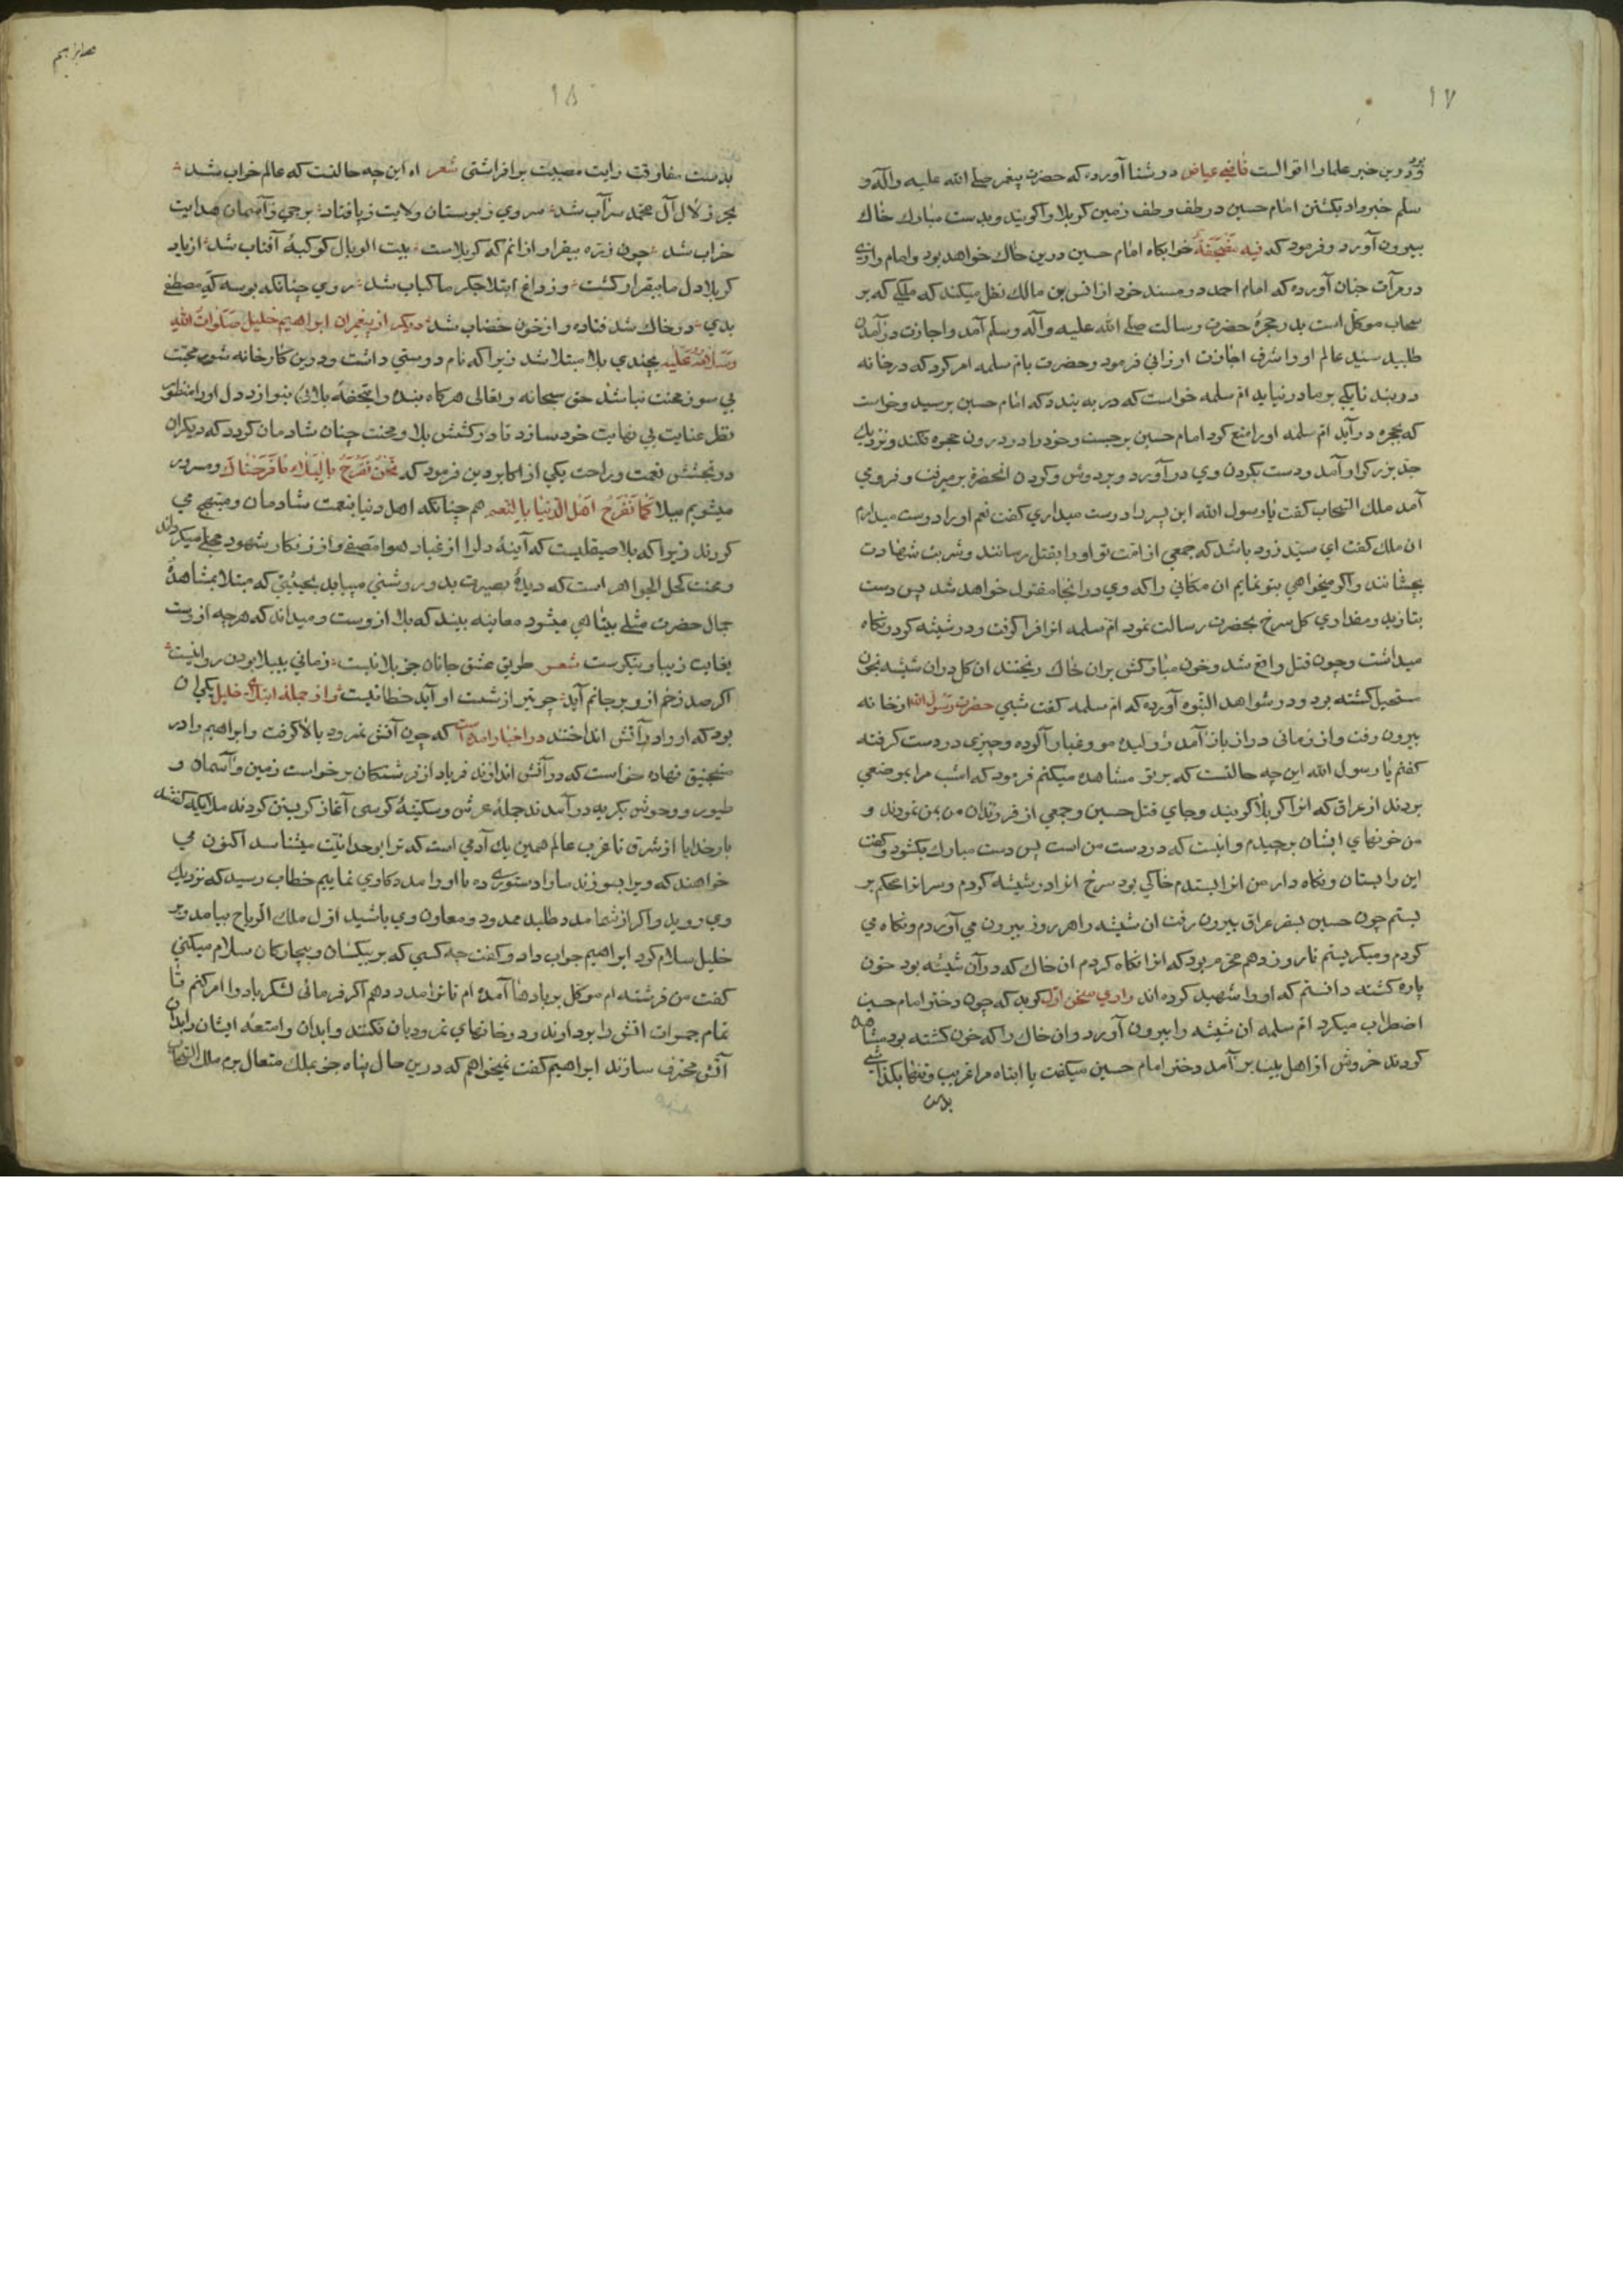 ١٧
ودرین خبر علما را اقوالست قاضی عیاض در شفا آورده که حضرت پیغمبر صلی الله علیه وآله و
سلم خبر داد بکشتن امام حسین در طف و طف زمین کربلا را کویند و بدست مبارک خاک
بیرون آورد و فرمود که فیه مضجعه خوابکاه امام حسین درین خاک خواهد بود و امام
در مرآت جنان آورده که امام احمد در مسند خود از انس بن مالک نقل میکند که ملکی که بر
سحاب موکل است بدر حجرهٔ حضرت رسالت صلی الله علیه وآله وسلم آمد و اجازت درآمدن
طلبید سید عالم او را شرف اجازت ارزانی فرمود و حضرت بام سلمه امر کرد که در خانه
در بند تا یکی بر ما در نیاید ام سلمه خواست که در به بندد که امام حسین برسید و خواست
که بحجره درآید ام سلمه او را منع کرد امام حسین برجست و خود را در درون حجره فکند و نزدیک
جد بزرکوار آمد و دست بکردن وی درآورد و بر دوش و کردن انحضرة بر میرفت و فرو می
آمد ملک السحاب کفت یا رسول الله این پسر را دوست میداری کفت نعم او را دوست میدارم
ان ملک کفت ای سید زود باشد که جمعی از امت تو او را بقتل رسانند و شربت شهادت
بچشانند و اکر میخواهی بتو نمایم ان مکانی را که وی در انجا مقتول خواهد شد پس دست
بیازید و مقداری کل سرخ بحضرت رسالت نمود ام سلمه انرا فرا کرفت و در شیشه کرد و نکاه
میداشت و چون قتل واقع شد و خون مبارکش بران خاک ریختند ان کل دران شیشه بخون
مستحیل کشته بود و در شواهد النبوه آورده که ام سلمه کفت شبی حضرت رسول الله از خانه
بیرون رفت و از زمانی دراز بازآمد ژولیده مو و غبار آلوده و چیزی در دست کرفته
کفتم یا رسول الله این چه حالتست که بر تو مشاهده میکنم فرمود که امشب مرا بموضعی
بردند از عراق که انرا کربلا کویند و جای قتل حسین و جمعی از فرزندان من بمن نمودند و
من خونهای ایشان برچیدم و اینست که در دست من است پس دست مبارک بکشود و کفت
این را بستان و نکاه دار من انرا بستدم خاکی بود سرخ انرا در شیشه کردم و سر انرا محکم بر
بستم چون حسین بسفر عراق بیرون رفت ان شیشه را هر روز بیرون می آوردم و نکاه می
کردم و میکریستم تا روز دهم محرم بود که انرا نکاه کردم ان خاک که درآن شیشه بود خون
پاره کشته دانستم که او را شهید کرده اند راوی سخن اول کوید که چون دختر امام حسین
اضطراب میکرد ام سلمه ان شیشه را بیرون آورد و ان خاک را که خون کشته بود مشاهده
کردند خروش از اهل بیت برآمد دختر امام حسین میکفت یا ابتاه مرا غریب و تنها بکذاشتی
بدست
١٨
بدست مفارقت رایت مصیبت برافراشتی شعر اه این چه حالتست که عالم خراب شد
بحر زلال آل محمد سراب شد سروی ز بوستان ولایت ز پا فتاد برجی ز آسمان هدایت
خراب شد چون ذره بیقرار ازانم که کربلاست بیت الوبال کوکبهٔ آفتاب شد از یاد
کربلا دل ما بیقرار کشت وز داغ ابتلا جکر ما کباب شد روی چنانکه بوسه که مصطفی
بدی در خاک شد فتاده و از خون خضاب شد دیکر از پیغمبران ابراهیم خلیل صلوات الله
وسلامه علیه بچندی بلا مبتلا شد زیرا که نام دوستی داشت و درین کارخانه شور محبت
بی سوز محنت نباشد حق سبحانه و تعالی هرکاه بنده را بتحفه بلائی بنوازد دل او را منظور
نظر عنایت بی نهایت خود سازد تا در کشش بلا و محنت چنان شادمان کردد که دیکران
در بخشش نعمت و راحت یکی از اکابر دین فرمود که نحن نفرح بالبلاء ما فرحناک و مسرور
میشویم ببلا کما تفرح اهل الدنیا بالنعم هم چنانکه اهل دنیا بنعمت شادمان و مبتهج می
کردند زیرا که بلا صیقلیست که آینهٔ دلرا از غبار هوا مصفی و از زنکار شهود مجلی میکرداند
و محنت کحل الجواهر است که دیدهٔ بصیرت بدو روشنی مییابد بحیثیتی که مبتلا بمشاهدهٔ
جمال حضرت مبلی بینا می میشود معاینه بیند که بلا ازوست و میداند که هرچه ازوست
بغایت زیبا و نیکوست شعر طریق عشق جانان جز بلا نیست زمانی بیبلا بودن روا نیست
اکر صد زخم ازو بر جانم آید چو تیر از شست او آید خطا نیست و از جملهٔ ابتلای خلیل یکی ان
بود که او را در آتش انداختند در اخبار امده است که چون آتش نمرود بالا کرفت و ابراهیم را در
منجنیق نهاده خواست که در آتش اندازند فریاد از فرشتکان برخواست زمین و آسمان و
طیور و وحوش بکریه درآمدند جملهٔ عرش و سکنهٔ کرسی آغاز کریستن کردند ملایکه کفتند
بار خدایا از شرق تا غرب عالم همین یک آدمی است که ترا بوحدانیت میشناسد اکنون می
خواهند که ویرا بسوزند مارا دستوری ده تا او را مددکاری نماییم خطاب رسید که نزدیک
وی روید و اکر از شما مدد طلبد ممد و معاون وی باشید اول ملک الریاح بیامد و بر
خلیل سلام کرد ابراهیم جواب داد و کفت چه کسی که بر بیکسان و بیچارکان سلام میکنی
کفت من فرشته ام موکل بر بادها آمده ام تا ترا مدد دهم اکر فرمائی لشکر باد را امر کنم تا
تمام جمرات اتش را بردارند و در خانهای نمرودیان فکنند و ابدان و امتعهٔ ایشان را بدان
آتش محترق سازند ابراهیم کفت نمیخواهم که درین حال پناه جز بملک متعال برم ملک السحاب